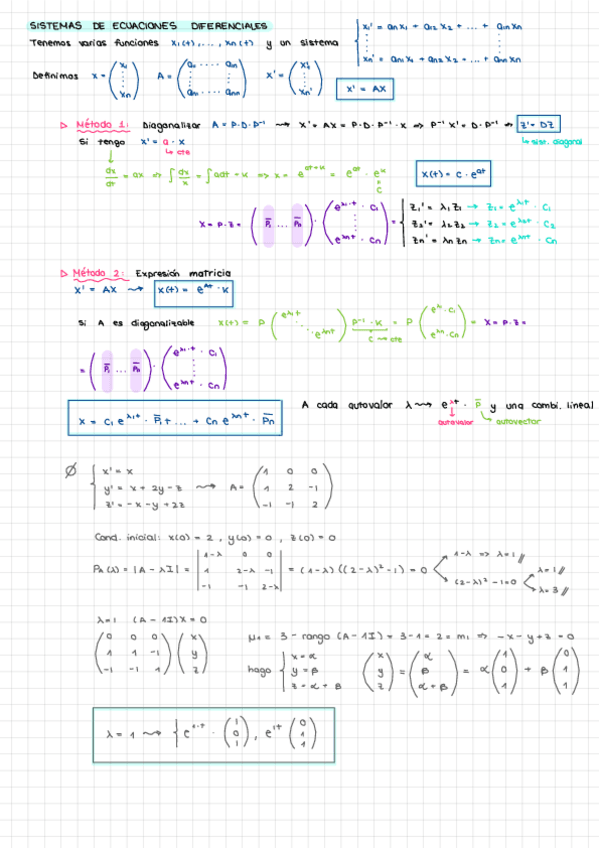 SISTEMAS DE ECUACIONES DIFERENCIALES
Tenemos varias funciones x₁(t), ..., xn(t) y un sistema { x₁' = a₁₁x₁ + a₁₂x₂ + ... + a₁nxn
⋮
xn' = an₁x₁ + an₂x₂ + ... + annxn
Definimos X = (x₁ ⋮ xn) A = (a₁₁ ..... a₁n ⋮ an₁ .... ann) X' = (x₁' ⋮ xn') X' = AX
▷ Método 1: Diagonalizar A = P·D·P⁻¹ ⇝ X' = AX = P·D·P⁻¹·X ⇒ P⁻¹X' = D·P⁻¹ ⇒ Z' = DZ
Si tengo x' = a·x
↳ cte
↳ sist. diagonal
dx/dt = ax ⇒ ∫dx/x = ∫adt + K ⇒ x = e^(at+K) = e^(at) · e^K
C
x(t) = C · e^(at)
X = P·Z = (P̄₁ ... P̄n) · (e^(λ₁t) · C₁ ⋮ e^(λnt) · Cn) = { z₁' = λ₁z₁ → z₁ = e^(λ₁t) · C₁
z₂' = λ₂z₂ → z₂ = e^(λ₂t) · C₂
zn' = λnzn → zn = e^(λnt) · Cn
▷ Método 2: Expresión matricia
X' = AX ⇝ X(t) = e^(At) · K
Si A es diagonalizable X(t) = P (e^(λ₁t) ⋱ e^(λnt)) P⁻¹·K = P (e^(λ₁t)·C₁ ⋮ e^(λnt)·Cn) = X = P·Z =
C ⇝ cte
= (P̄₁ ... P̄n) · (e^(λ₁t) · C₁ ⋮ e^(λnt) · Cn)
X = C₁e^(λ₁t) · P̄₁ + ... + Cn e^(λnt) · P̄n
A cada autovalor λ ⇝ e^(λt) · P̄ y una combi. lineal
autovalor autovector
∅ { x' = x
y' = x + 2y - z ⇝ A = (1 0 0 / 1 2 -1 / -1 -1 2)
z' = -x - y + 2z
Cond. inicial: x(0) = 2, y(0) = 0, z(0) = 0
P_A(λ) = |A - λI| = |1-λ 0 0 / 1 2-λ -1 / -1 -1 2-λ| = (1-λ)((2-λ)² - 1) = 0
1-λ ⇒ λ = 1 //
(2-λ)² - 1 = 0
λ = 1 //
λ = 3 //
λ = 1 (A - 1I)X = 0
(0 0 0 / 1 1 -1 / -1 -1 1) (x / y / z)
μ₁ = 3 - rango (A - 1I) = 3 - 1 = 2 = m₁ ⇒ -x - y + z = 0
hago { x = α
y = β
z = α + β
(x / y / z) = (α / β / α + β) = α (1 / 0 / 1) + β (0 / 1 / 1)
λ = 1 ⇝ { e^(1·t) · (1 / 0 / 1), e^(1t) (0 / 1 / 1)